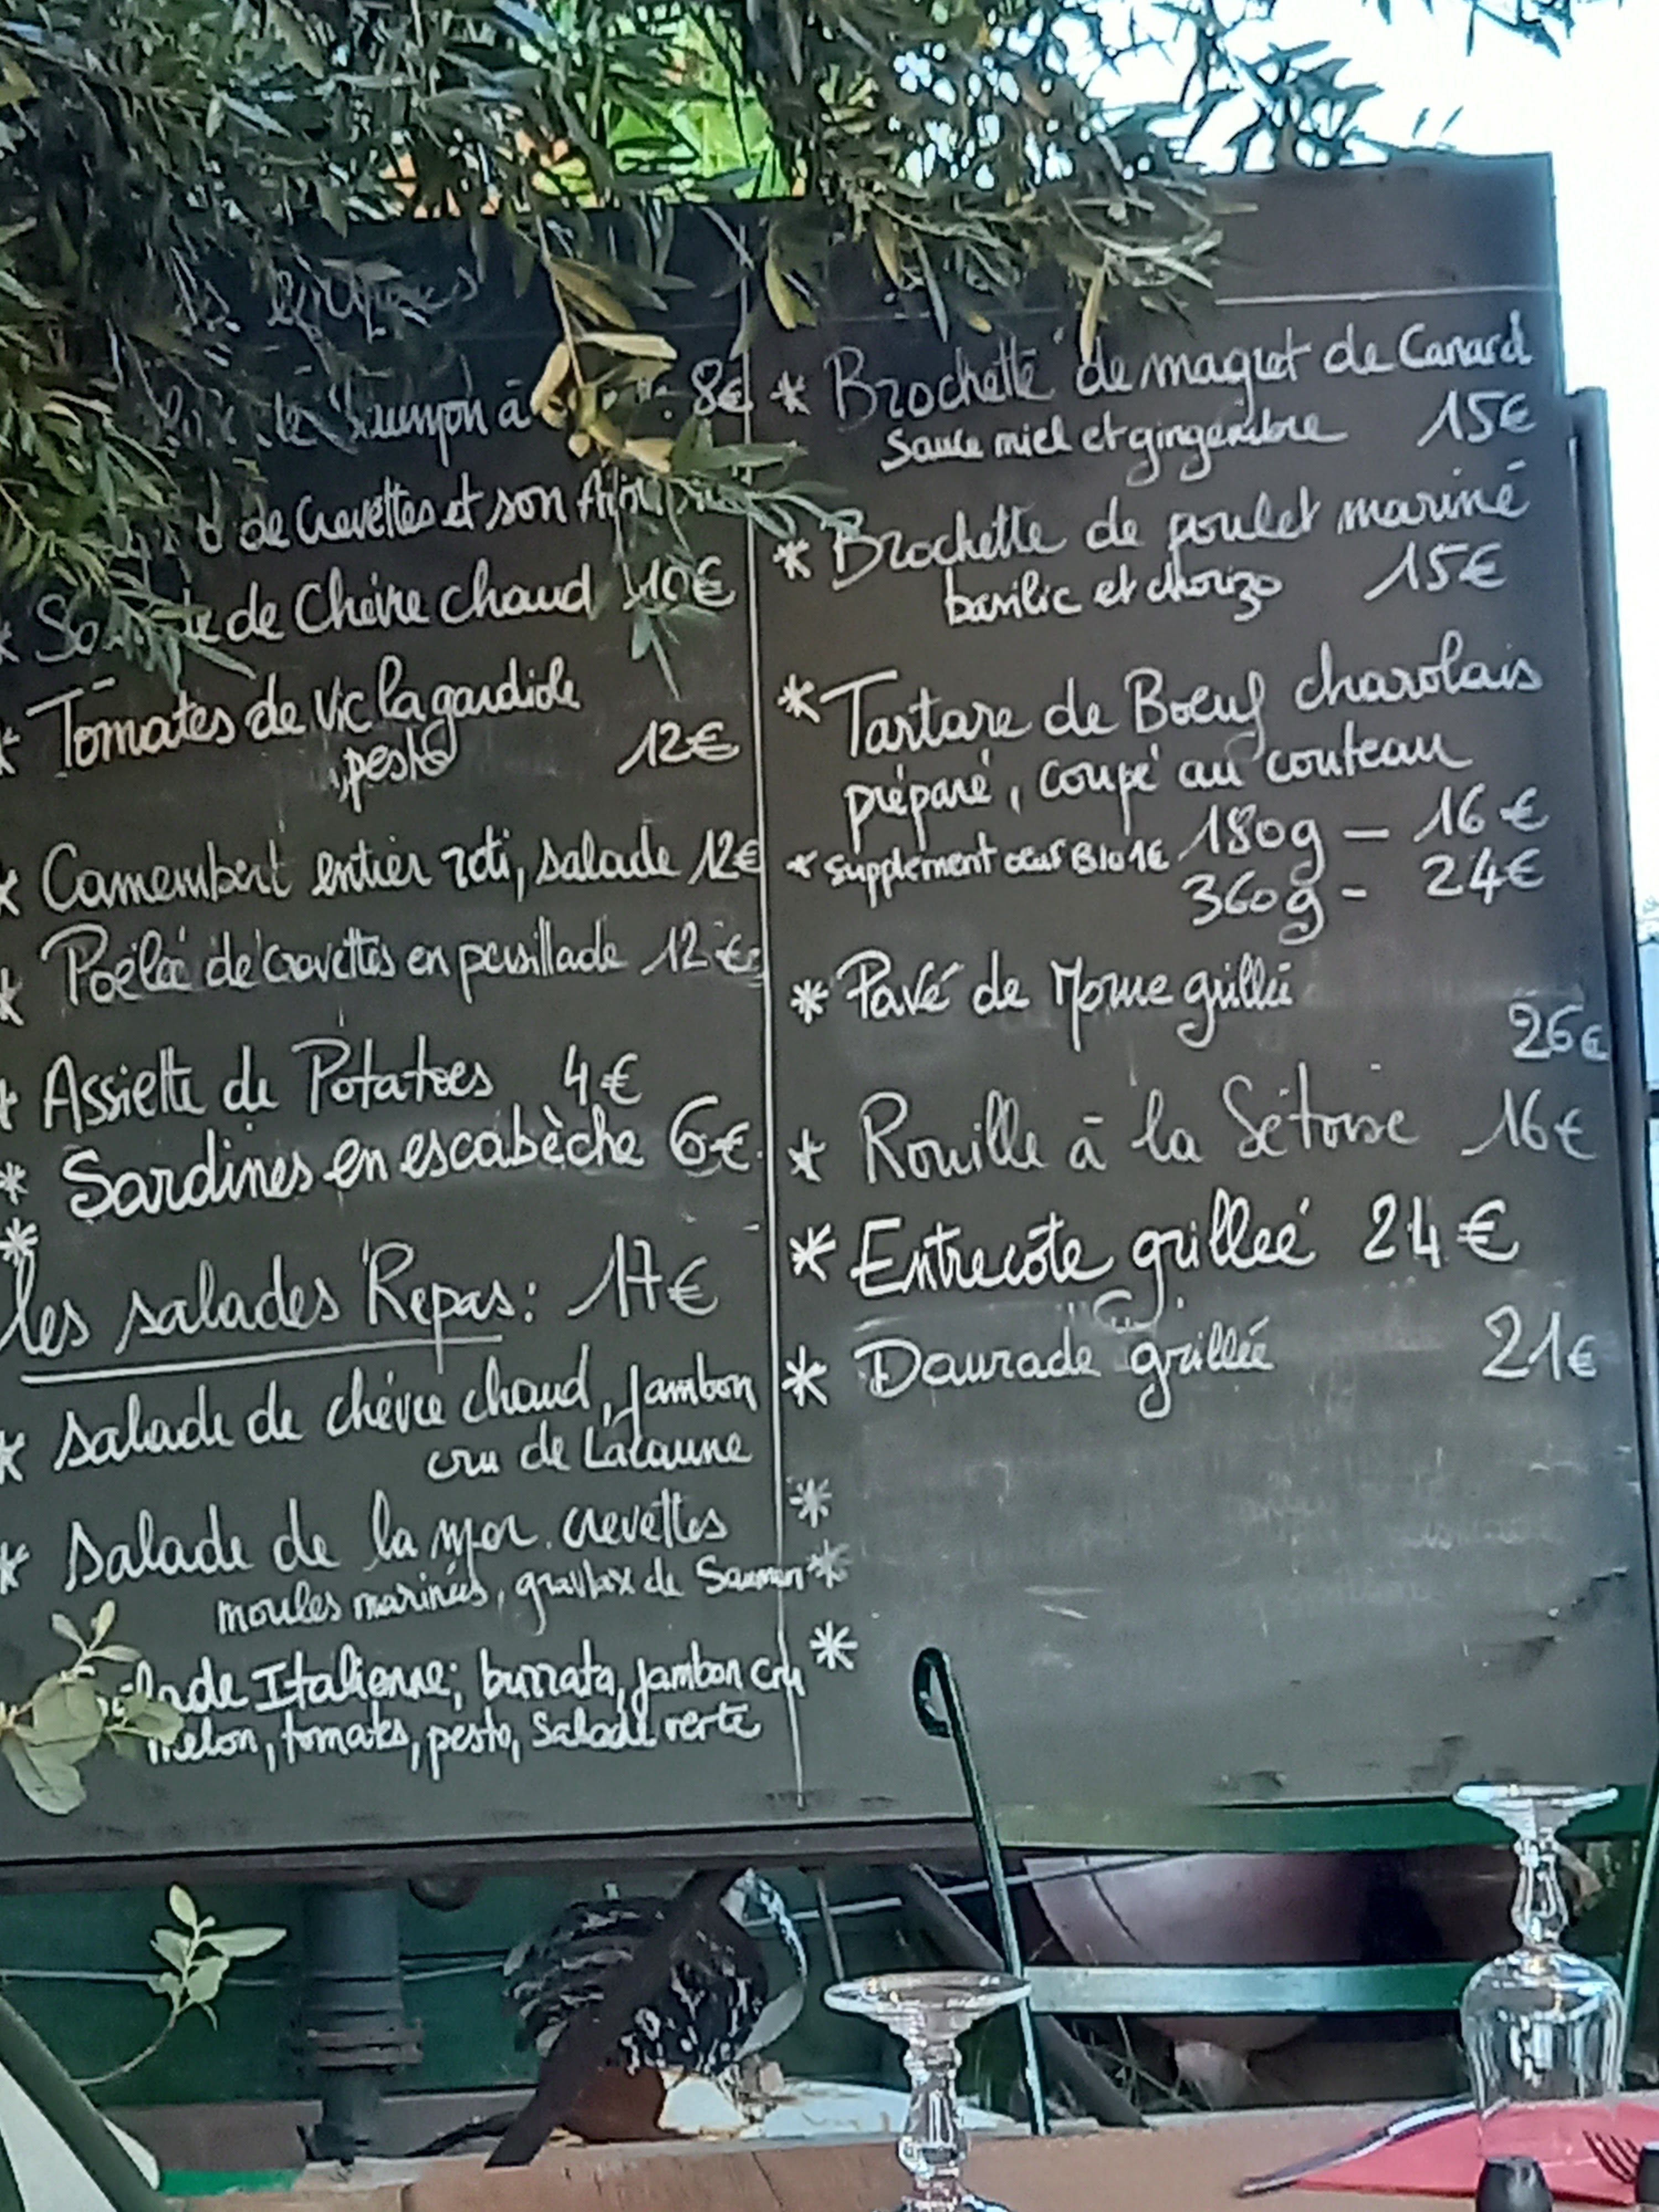 8€
de Crevettes et son
de Chèvre chaud 10€
* Tomates de Vic la gardiole
pesto 12€
* Camembert entier roti, salade 12€
* Poêlée de crevettes en persillade 12€
* Assiette de Potatoes 4€
* Sardines en escabèche 6€
*
les salades Repas: 17€
* salade de chèvre chaud, jambon
cru de Lacaune
* salade de la mer. crevettes
moules marinées, gravlax de Saumon
Salade Italienne; burrata, jambon cru
melon, tomates, pesto, Salade verte
* Brochette de magret de Canard
Sauce miel et gingembre 15€
* Brochette de poulet mariné
basilic et chorizo 15€
* Tartare de Boeuf charolais
préparé, coupé au couteau
180g - 16€
* Supplement oeuf Bio 1€
360g - 24€
* Pavé de Morue grillée
26€
* Rouille à la Sétoise 16€
* Entrecôte grilleé 24€
* Daurade grillée 21€
*
*
*